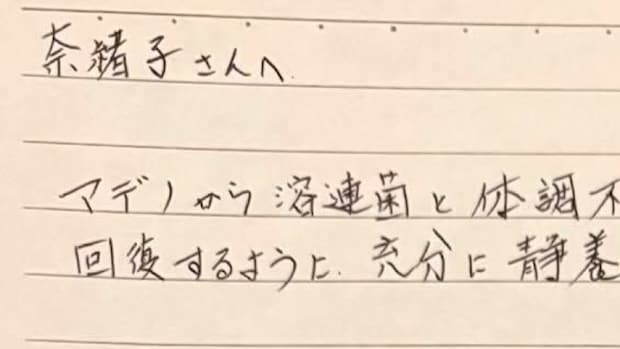 奈緒子さんへ
アデノから溶連菌と体調不
回復するように、充分に静養